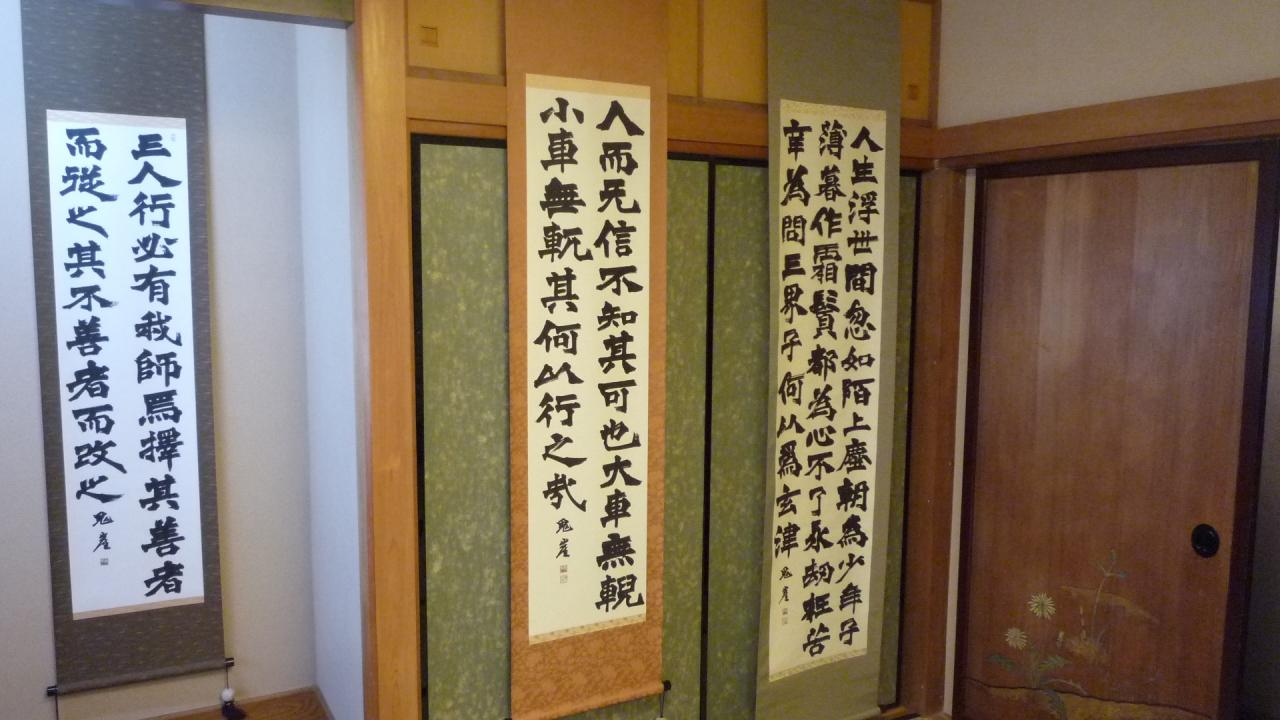 人生浮世間忽如陌上塵朝為少年子
薄暮作霜鬢都為心不了永劫枉苦
辛為問三界子何以爲玄津 鬼崖
人而无信不知其可也大車無輗
小車無軏其何以行之哉 鬼崖
三人行必有我師焉擇其善者
而從之其不善者而改之 鬼崖